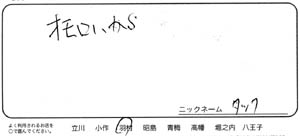 オモロいから
ニックネーム タック
よく利用されるお店を
○で囲んでください。 立川 小作 羽村 昭島 青梅 高幡 堀之内 八王子